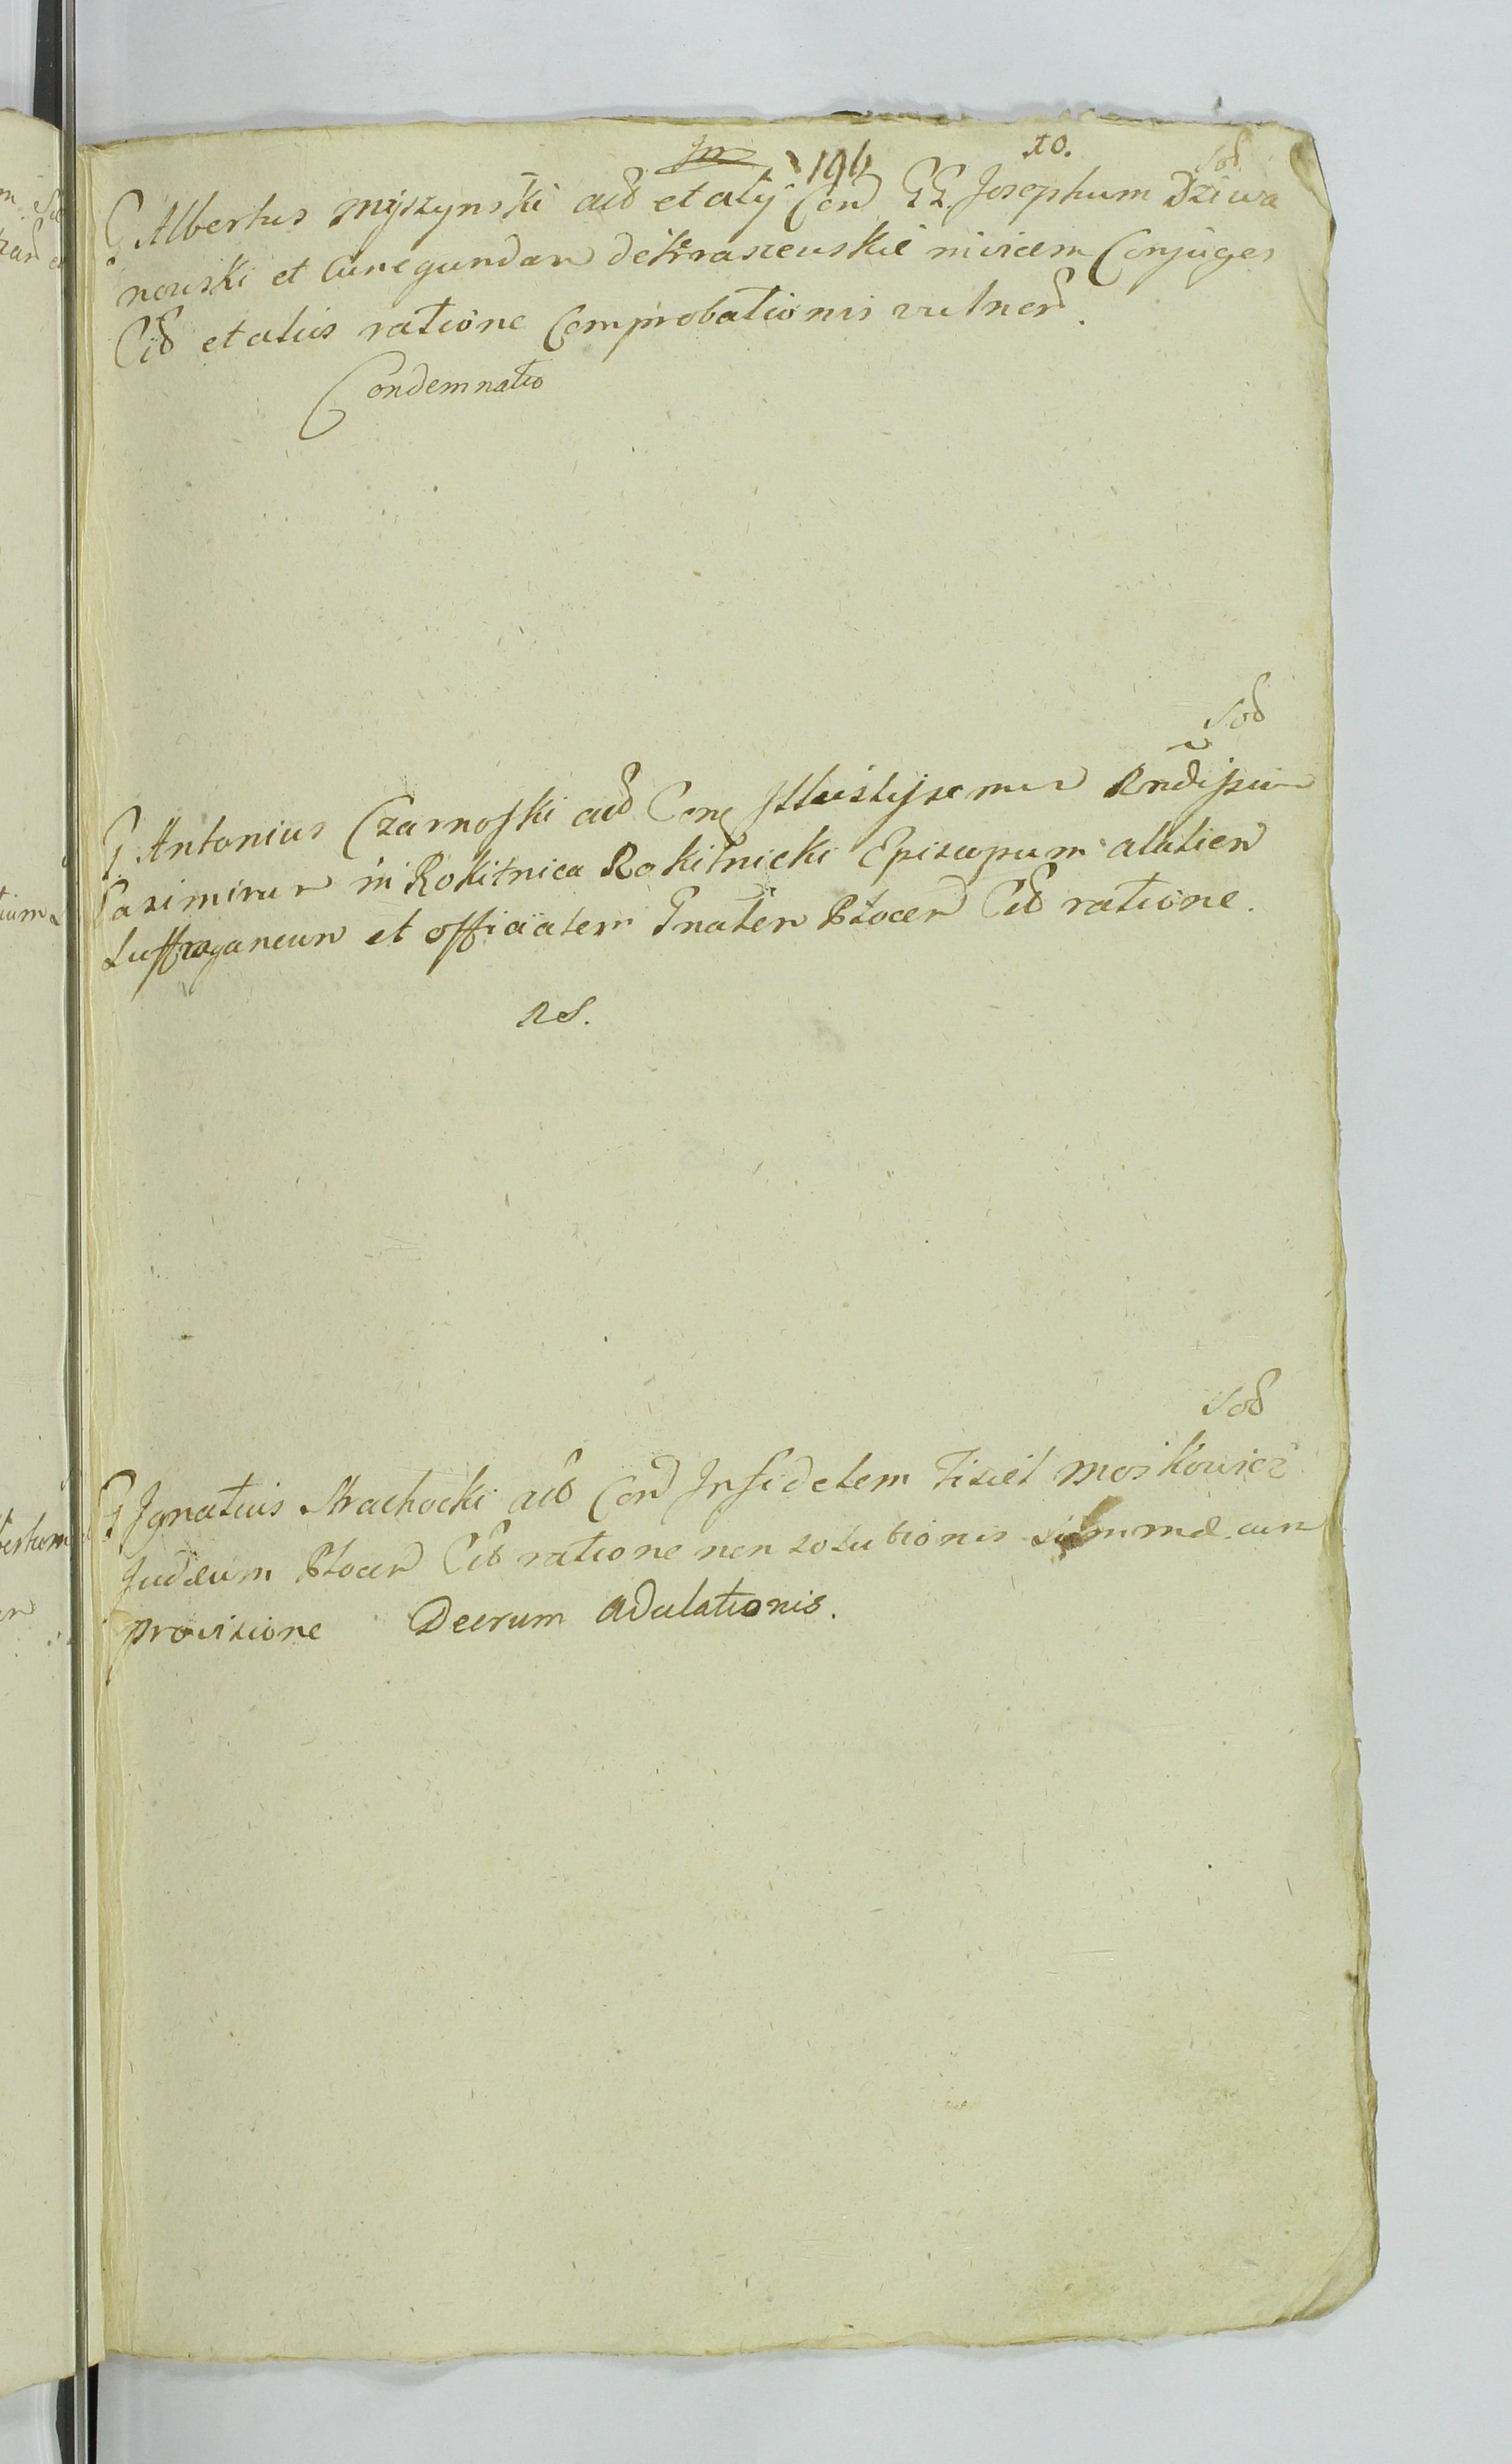 194 10.
Sod
G Albertus Myszynski acd et alij Con GG. Josephum Dziwa
nowski et Cunegundan de Kraszewskie invicem Conjuges
Cid et alios ratione Comprobationis vulner.
Condemnatio
Sod
G Antonius Czarnoski acd Con Illustrissimu Rndissim
Casimirum in Rokitnica Rokitnicki Episcopum alalien
Suffraganeum et officialem Gnalen Plocen Cid ratione.
RS.
Sod
G Ignatius Strachocki acd Con Infidelem Moskowicz
Judæum Plocen Cid ratione non solutionis summæ cum
provisione Decrum Adcitationis.